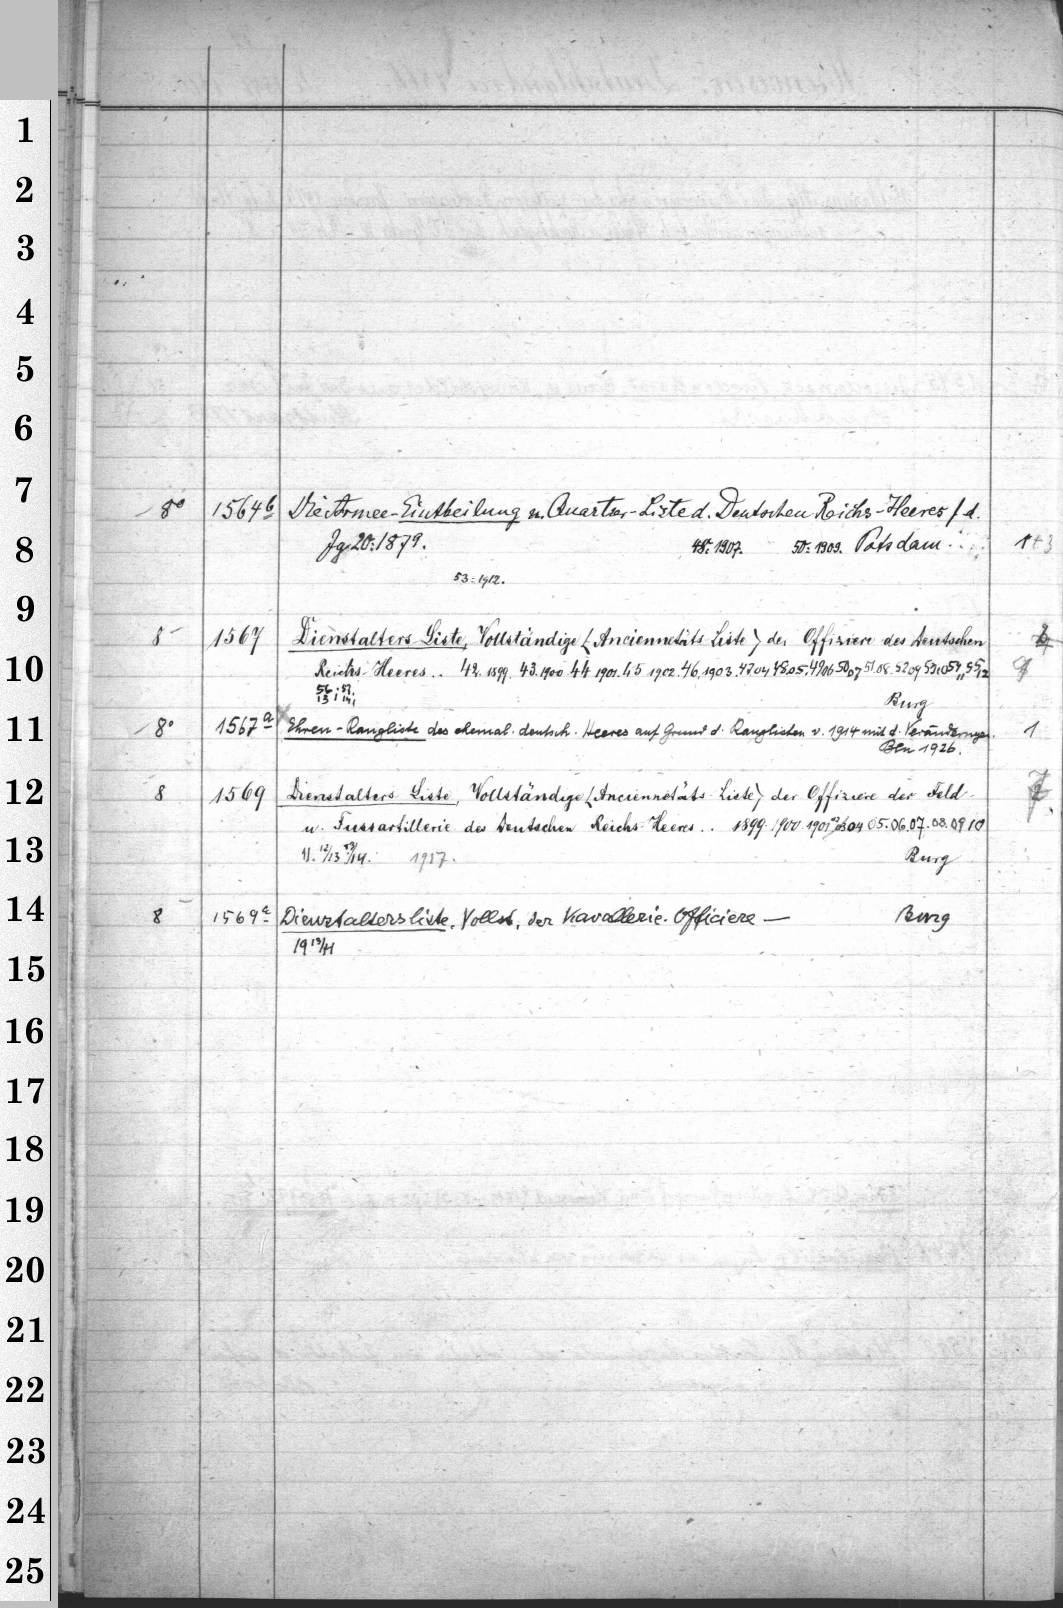 1
2
3
4
5
6
7
8° 1564b Die Armee-Eintheilung u. Quartier-Liste d. Deutschen Reichs-Heeres f d.
8 Jg 20:1879. 48:1907. 50:1909. Potsdam 1+3
53:1912.
9
8 1567 Dienstalters Liste, Vollständige (Anciennetäts Liste) der Offiziere des Deutschen
10 Reichs-Heeres .. 42. 1899. 43.1900. 44 1901. 45 1902. 46, 1903. 47.04 48.05. 49.06 50.07 51.08. 52.09 53.10 54,11 55,12
56,13 57,14, Burg
11 8° 1567a Ehren-Rangliste des ehemal. deutsch. Heeres auf Grund d. Ranglisten v. 1914 mit d. Veränderungen. 1
Bln 1926.
12 8 1569 Dienstalters Liste, Vollständige (Anciennetäts Liste) der Offiziere der Feld
u. Fussartillerie des Deutschen Reichs-Heeres .. 1899. 1900. 1901 04 05. 06. 07. 08. 09 10
13 11. 12/13 13/14. 1917. Burg
14 8 1569a Dienstaltersliste, Vollst. der Kavallerie-Officiere — Burg
19 13/14
15
16
17
18
19
20
21
22
23
24
25